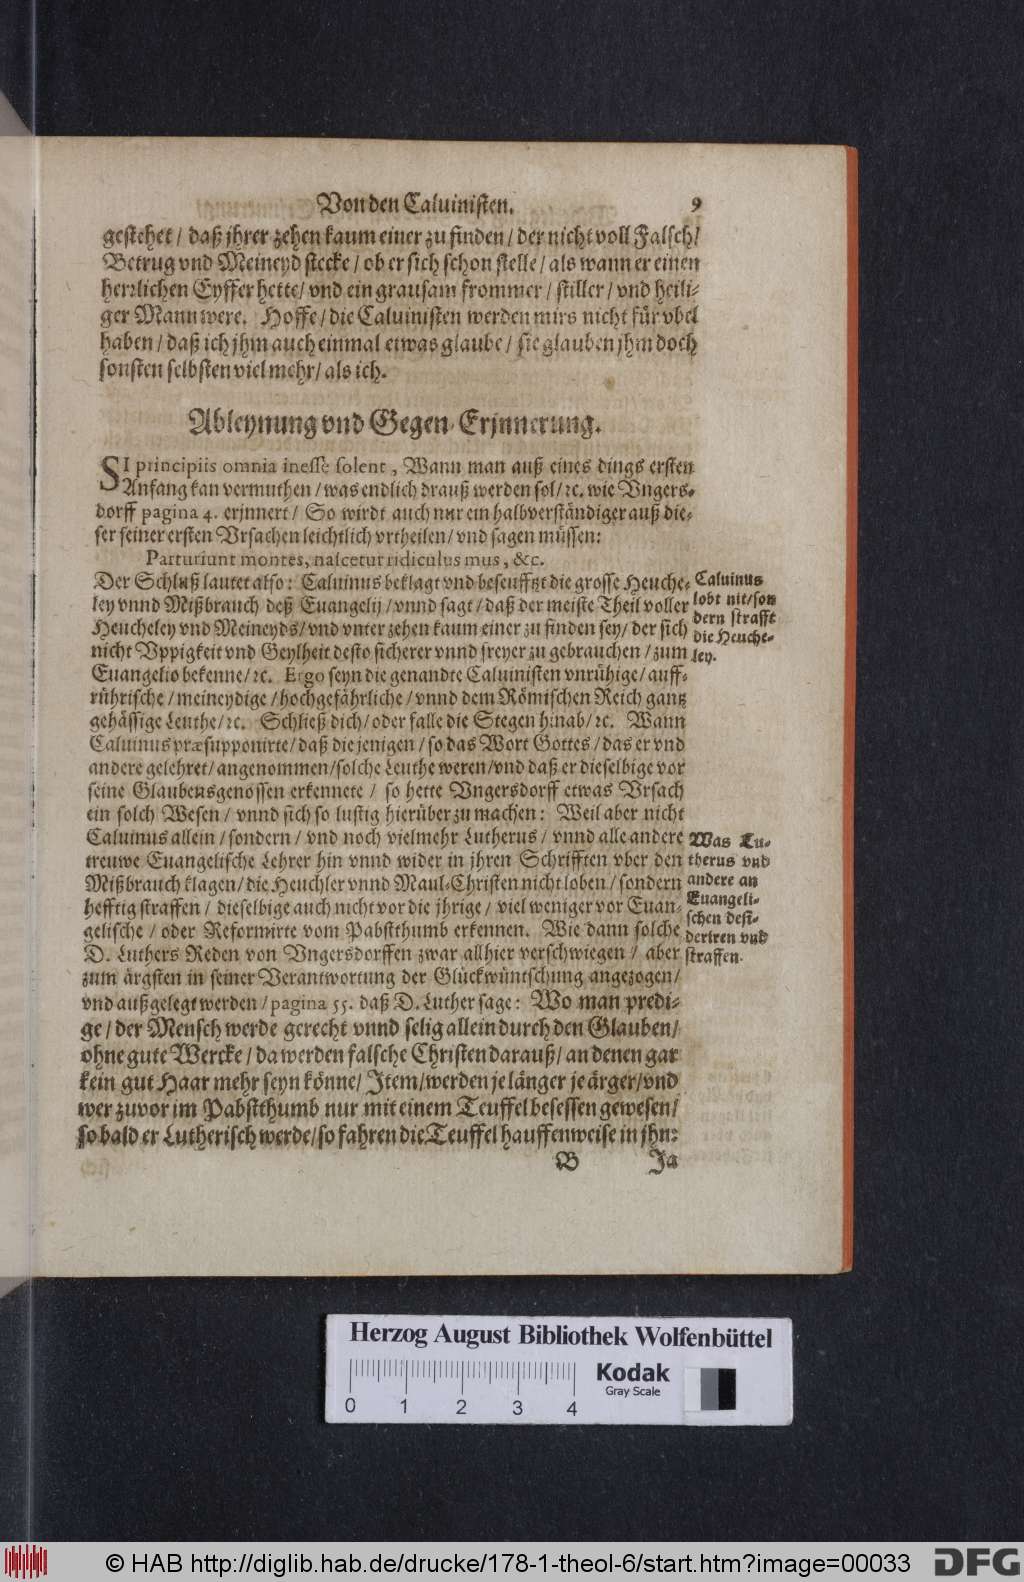 Von den Caluinisten. 9
gestehet / daß jhrer zehen kaum einer zu finden / der nicht voll Falsch /
Betrug vnd Meineyd stecke / ob er sich schon stelle / als wann er einen
herrlichen Eyffer hette / vnd ein grausam frommer / stiller / vnd heili-
ger Mann were. Hoffe / die Caluinisten werden mirs nicht für vbel
haben / daß ich jhm auch einmal etwas glaube / sie glauben jhm doch
sonsten selbsten viel mehr / als ich.
Ableynung vnd Gegen-Erjnnerung.
SI principiis omnia inesse solent, Wann man auß eines dings ersten
Anfang kan vermuthen / was endlich drauß werden sol / ꝛc. wie Vngers-
dorff pagina 4. erjnnert / So wirdt auch nur ein halbverständiger auß die-
ser seiner ersten Vrsachen leichtlich vrtheilen / vnd sagen müssen:
Parturiunt montes, nascetur ridiculus mus, &c.
Der Schluß lautet also: Caluinus beklagt vnd beseufftzt die grosse Heuche-
ley vnnd Mißbrauch deß Euangelij / vnnd sagt / daß der meiste Theil voller
Heucheley vnd Meineyds / vnd vnter zehen kaum einer zu finden sey / der sich
nicht Vppigkeit vnd Geylheit desto sicherer vnnd freyer zu gebrauchen / zum
Euangelio bekenne / ꝛc. Ergo seyn die genandte Caluinisten vnrühige / auff-
rührische / meineydige / hochgefährliche / vnnd dem Römischen Reich gantz
gehässige Leuthe / ꝛc. Schließ dich / oder falle die Stegen hinab / ꝛc. Wann
Caluinus præsupponirte / daß die jenigen / so das Wort Gottes / das er vnd
andere gelehret / angenommen / solche Leuthe weren / vnd daß er dieselbige vor
seine Glaubensgenossen erkennete / so hette Vngersdorff etwas Vrsach
ein solch Wesen / vnnd sich so lustig hierüber zu machen: Weil aber nicht
Caluinus allein / sondern / vnd noch vielmehr Lutherus / vnnd alle andere
treuwe Euangelische Lehrer hin vnnd wider in jhren Schrifften vber den
Mißbrauch klagen / die Heuchler vnnd Maul-Christen nicht loben / sondern
hefftig straffen / dieselbige auch nicht vor die jhrige / viel weniger vor Euan-
gelische / oder Reformirte vom Pabstthumb erkennen. Wie dann solche
D. Luthers Reden von Vngersdorffen zwar allhier verschwiegen / aber
zum ärgsten in seiner Verantwortung der Glückwüntschung angezogen /
vnd außgelegt werden / pagina 55. daß D. Luther sage: Wo man predi-
ge / der Mensch werde gerecht vnnd selig allein durch den Glauben /
ohne gute Wercke / da werden falsche Christen darauß / an denen gar
kein gut Haar mehr seyn könne / Item / werden je länger je ärger / vnd
wer zuvor im Pabstthumb nur mit einem Teuffel besessen gewesen /
so bald er Lutherisch werde / so fahren die Teuffel hauffenweise in jhn:
B Ja
Caluinus
lobt nit / son
dern strafft
die Heuche-
ley.
Was Lu-
therus vnd
andere an
Euangeli-
schen desi-
deriren vnd
straffen.
Herzog August Bibliothek Wolfenbüttel
Kodak
Gray Scale
0 1 2 3 4
© HAB http://diglib.hab.de/drucke/178-1-theol-6/start.htm?image=00033
DFG